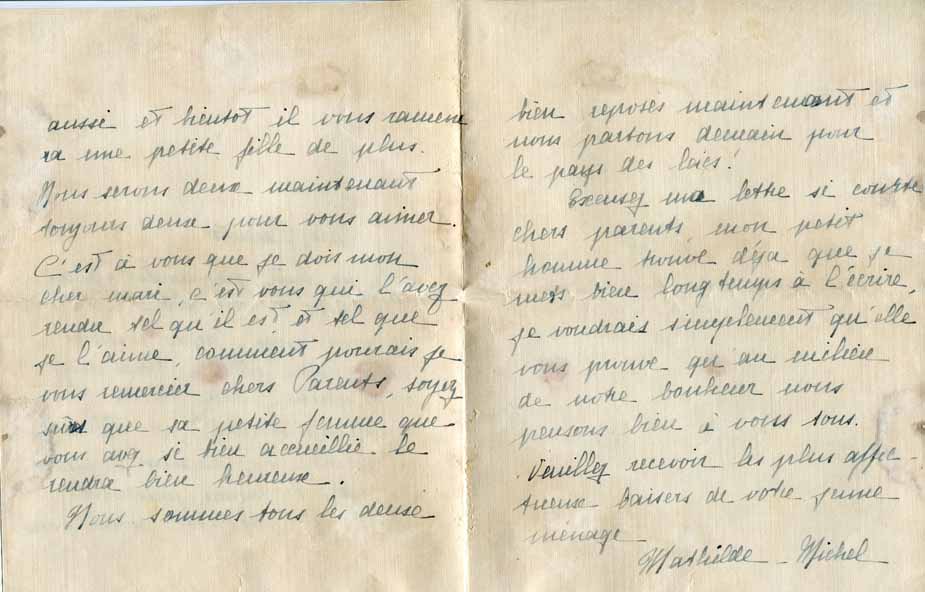 aussi et bientot il vous ramene
ra une petite fille de plus.
Nous serons deux maintenant
toujours deux pour vous aimer.
C'est à vous que je dois mon
cher mari, c'est vous qui l'avez
rendu tel qu'il est et tel que
je l'aime, comment pourais je
vous remercier chers Parents, soyez
sûrs que sa petite femme que
vous avez si bien accueillie le
rendra bien heureux.
Nous sommes tous les deux
bien reposés maintenant et
nous partons demain pour
le pays des lacs!
Excusez ma lettre si courte
chers parents, mon petit
homme trouve déja que je
mets bien longtemps à l'écrire,
je voudrais simplement qu'elle
vous prouve qu'au milieu
de notre bonheur nous
pensons bien à vous tous.
Veuillez recevoir les plus affec-
tueux baisers de votre jeune
ménage
Mathilde - Michel